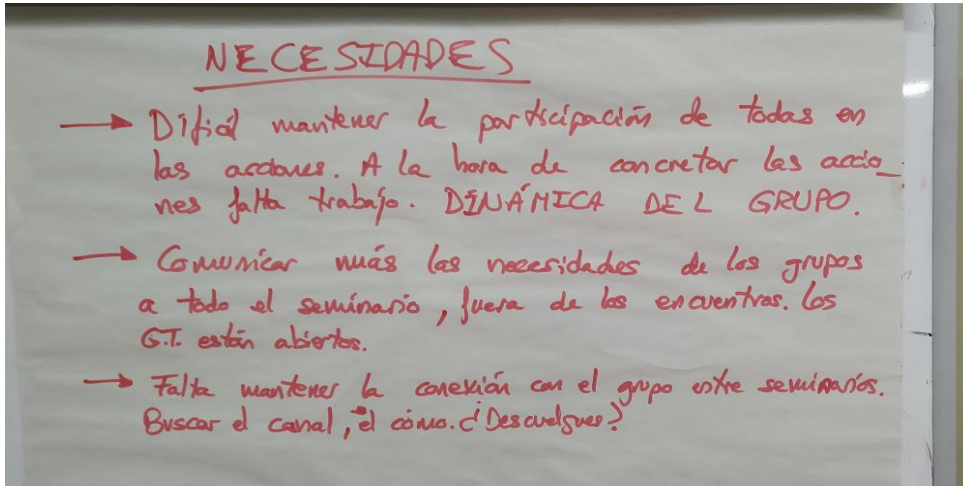 NECESIDADES
→ Difícil mantener la participación de todas en
las acciones. A la hora de concretar las accio_
nes falta trabajo. DINÁMICA DEL GRUPO.
→ Comunicar más las necesidades de los grupos
a todo el seminario, fuera de los encuentros. Los
G.T. están abiertos.
→ Falta mantener la conexión con el grupo entre seminarios.
Buscar el canal, el cómo. ¿Descuelgues?